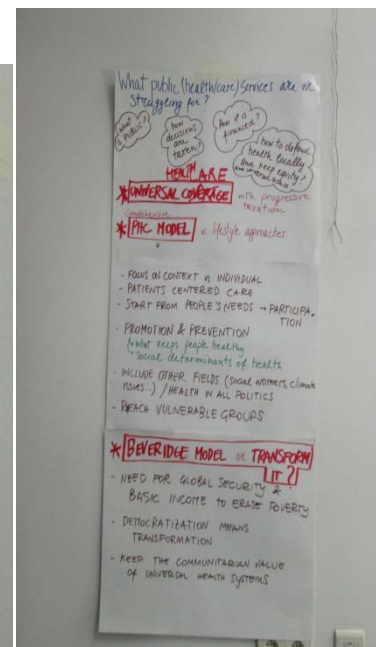 What public (health/care) services are we
struggling for?
what is public?
how decisions are taken?
how is it financed?
how to defend health locally and keep equity?
HEALTHCARE
* UNIVERSAL COVERAGE with progressive taxation
comprehensive
* PHC MODEL vs lifestyle approaches
- FOCUS ON CONTEXT vs INDIVIDUAL
- PATIENTS CENTERED CARE
- START FROM PEOPLE'S NEEDS → PARTICIPATION
- PROMOTION & PREVENTION
what keeps people healthy
social determinants of health
- INCLUDE OTHER FIELDS (social workers, climate
issues...) / HEALTH IN ALL POLITICS
- REACH VULNERABLE GROUPS
* BEVERIDGE MODEL or TRANSFORM
IT?
- NEED FOR GLOBAL SECURITY &
BASIC INCOME TO ERASE POVERTY
- DEMOCRATIZATION MEANS
TRANSFORMATION
- KEEP THE COMMUNITARIAN VALUE
OF UNIVERSAL HEALTH SYSTEMS